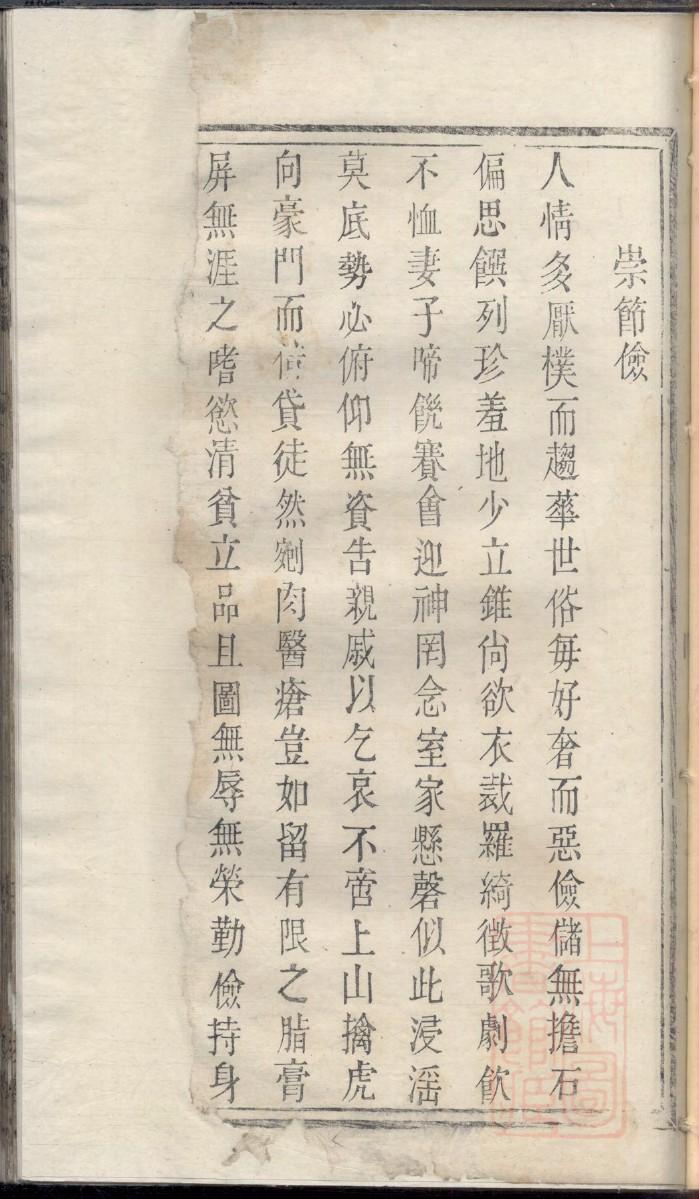 崇節儉
人情多厭樸而趨華世俗每好奢而惡儉儲無擔石
偏思饌列珍羞地少立錐尚欲衣裁羅綺徵歌劇飲
不恤妻子啼饑賽會迎神罔念室家懸磬似此浸淫
莫底勢必俯仰無資告親戚以乞哀不啻上山擒虎
向豪門而借貸徒然剜肉醫瘡豈如留有限之脂膏
屏無涯之嗜慾清貧立品且圖無辱無榮勤儉持身
上海圖書館藏